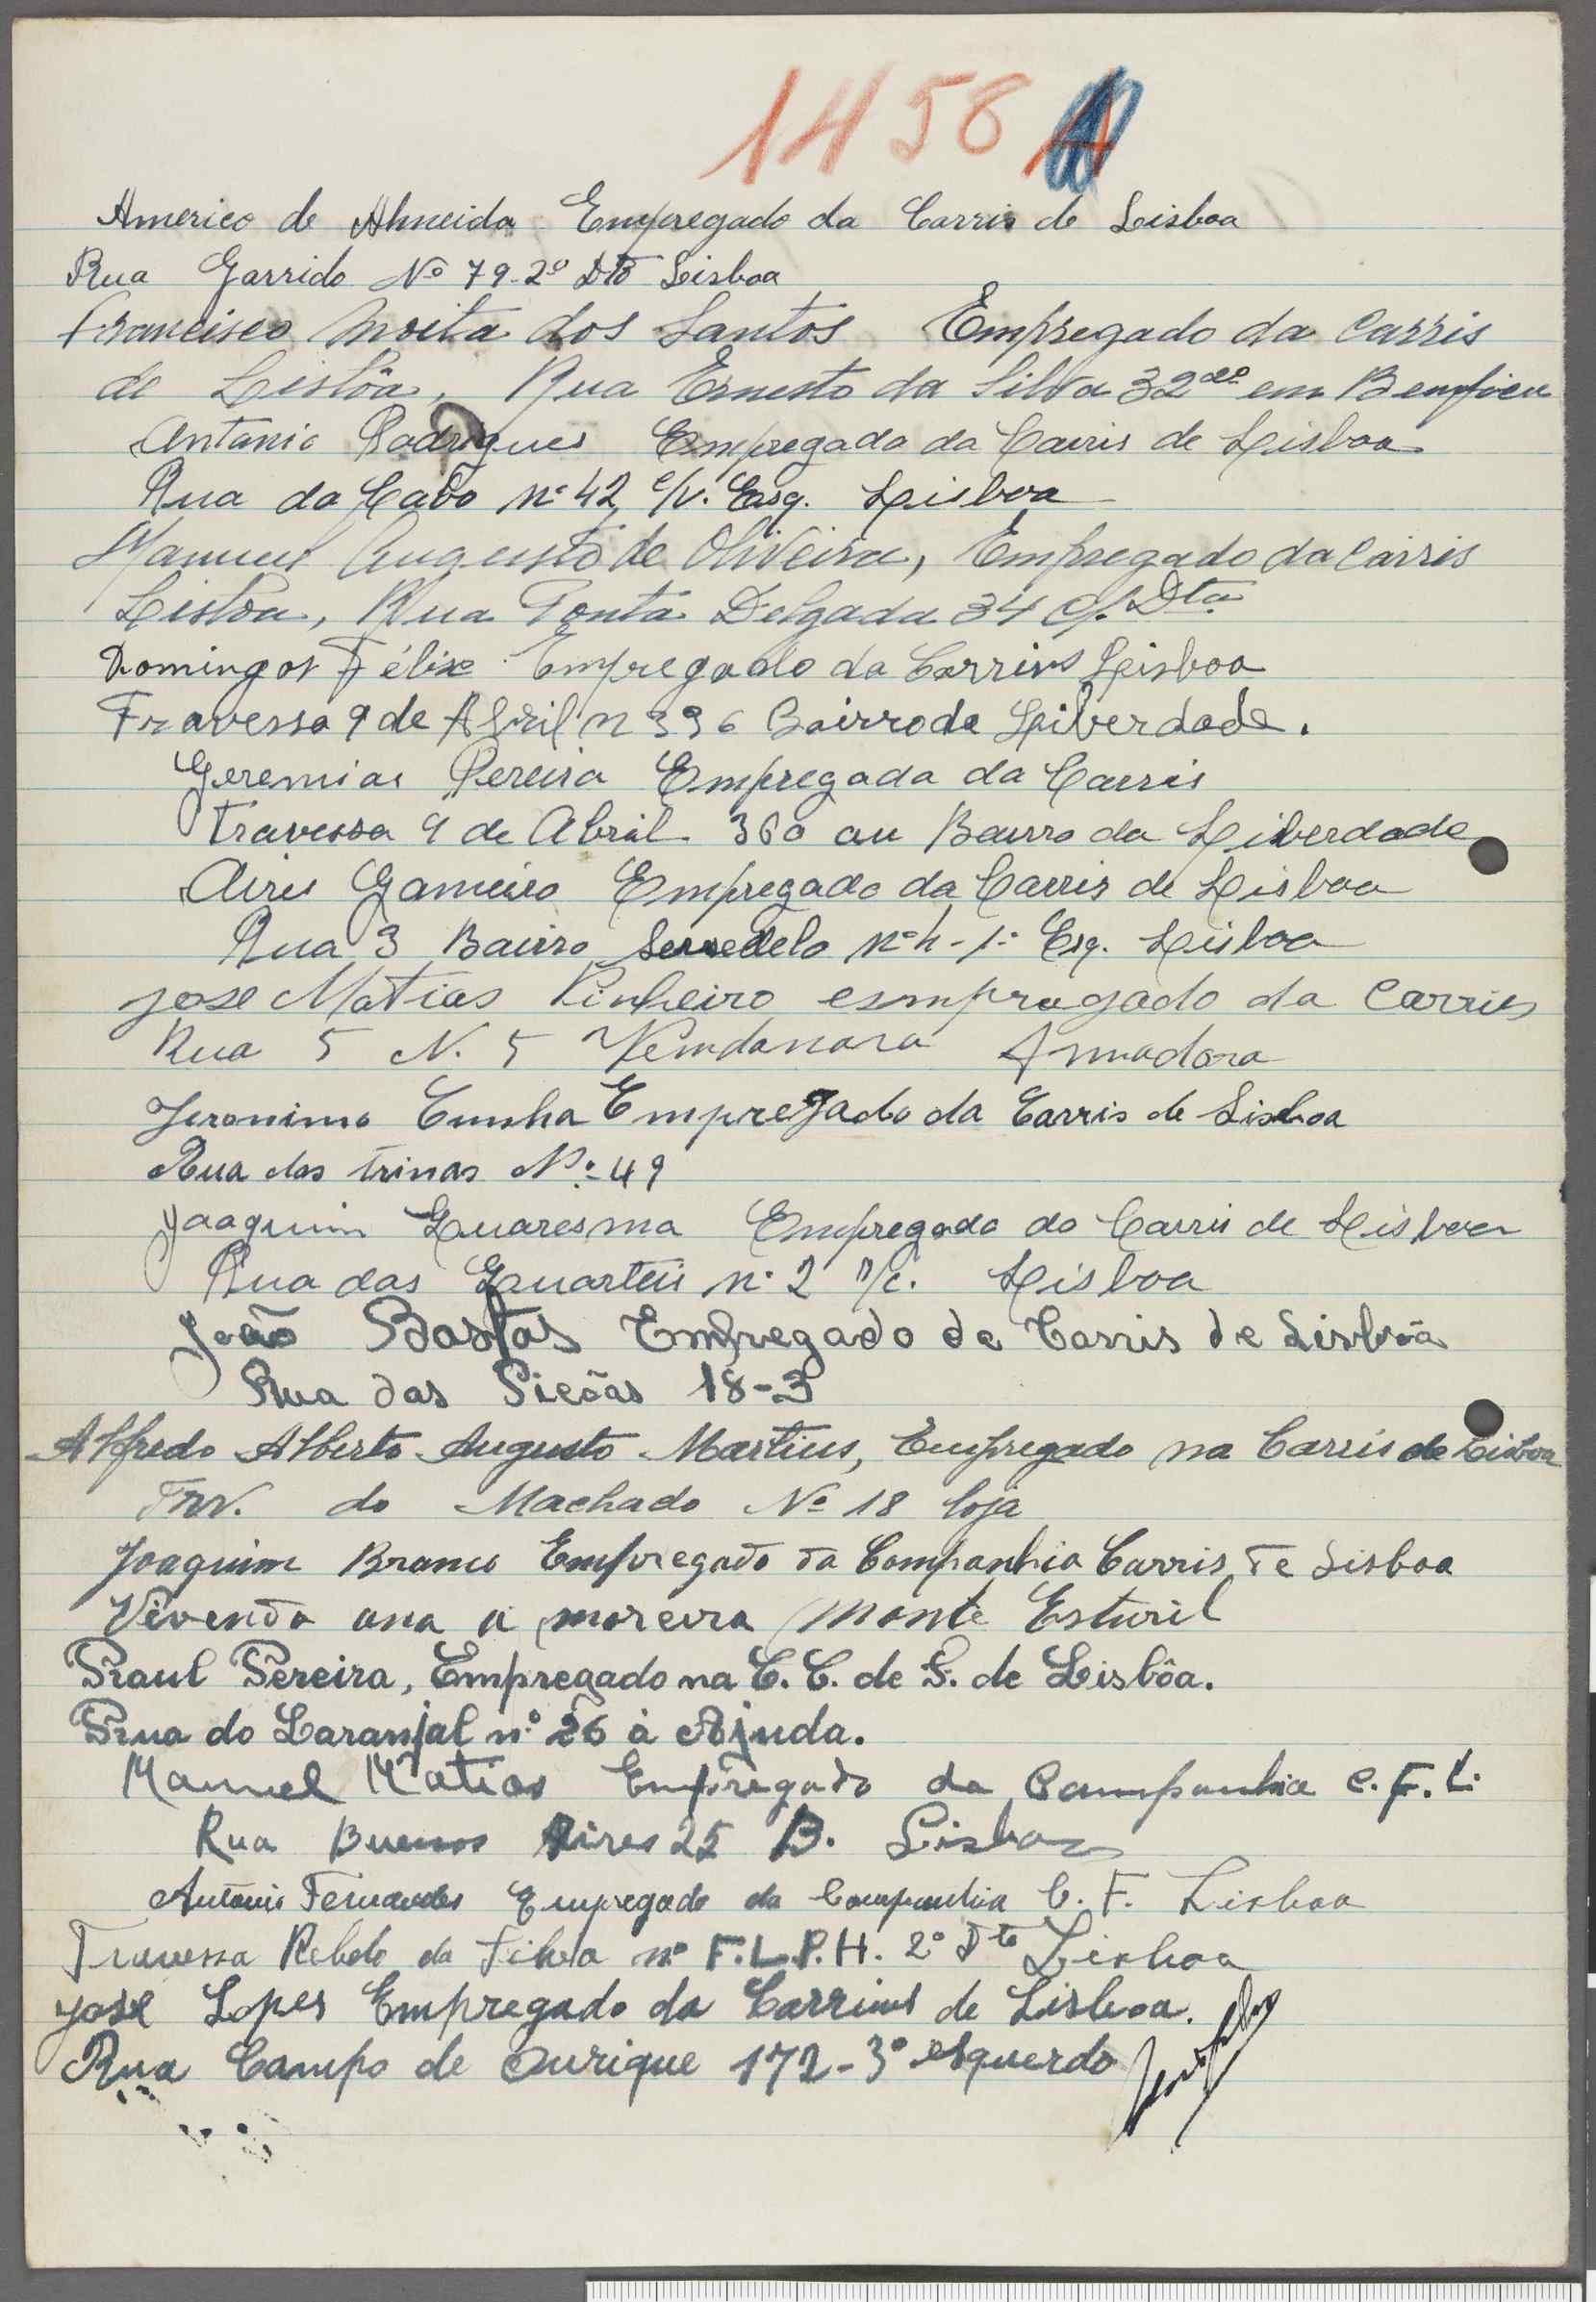 1458
Americo de Almeida Empregado da Carris de Lisboa
Rua Garrido Nº 79-2º Dtº Lisboa
Francisco Moita dos Santos Empregado da Carris
de Lisbôa, Rua Ernesto da Silva 32 em Bemfica
Antonio Rodrigues Empregado da Carris de Lisboa
Rua do Cabo nº 42, c/v. Esq. Lisboa
Manuel Augusto de Oliveira, Empregado da Carris
Lisboa, Rua Ponta Delgada 34 c/. Dta
Domingos Félix Empregado da Carrins Lisboa
Travessa 9 de Abril n 336 Bairro da Liberdade.
Geremias Pereira Empregado da Carris
Travessa 9 de Abril 360 au Bairro da Liberdade
Aires Gameiro Empregado da Carris de Lisboa
Rua 3 Bairro nº h-1º Esq. Lisboa
jose Matias Pinheiro esmpregado da Carris
Rua 5 N. 5 Vendanova Amadora
Jeronimo Cunha Empregado da Carris de Lisboa
Rua das trinas Nº-49
Joaquim Quaresma Empregado da Carris de Lisboa
Rua dos Quarteis nº 2 r/c. Lisboa
João Bastos Empregado da Carris de Lisbôa
Rua das Picôas 18-3
Alfredo Alberto Augusto Martins, Empregado na Carris de Lisboa
Trv. do Machado Nº 18 loja
Joaquim Branco Empregado da Companhia Carris de Lisboa
Vivenda ana a moreira Monte Esturil
Raul Pereira, Empregado na C. C. de F. de Lisbôa.
Rua do Laranjal n.º 26 à Ajuda.
Manuel Matias Empregado da Companhia C.F.L.
Rua Buenos Aires 25 B. Lisboa
António Fernandes Empregado da Companhia C. F. Lisboa
Travessa Rebelo da Silva nº F.L.P.H. 2º Dto Lisboa
José Lopes Empregado da Carrins de Lisboa.
Rua Campo de Ourique 172-3º esquerdo